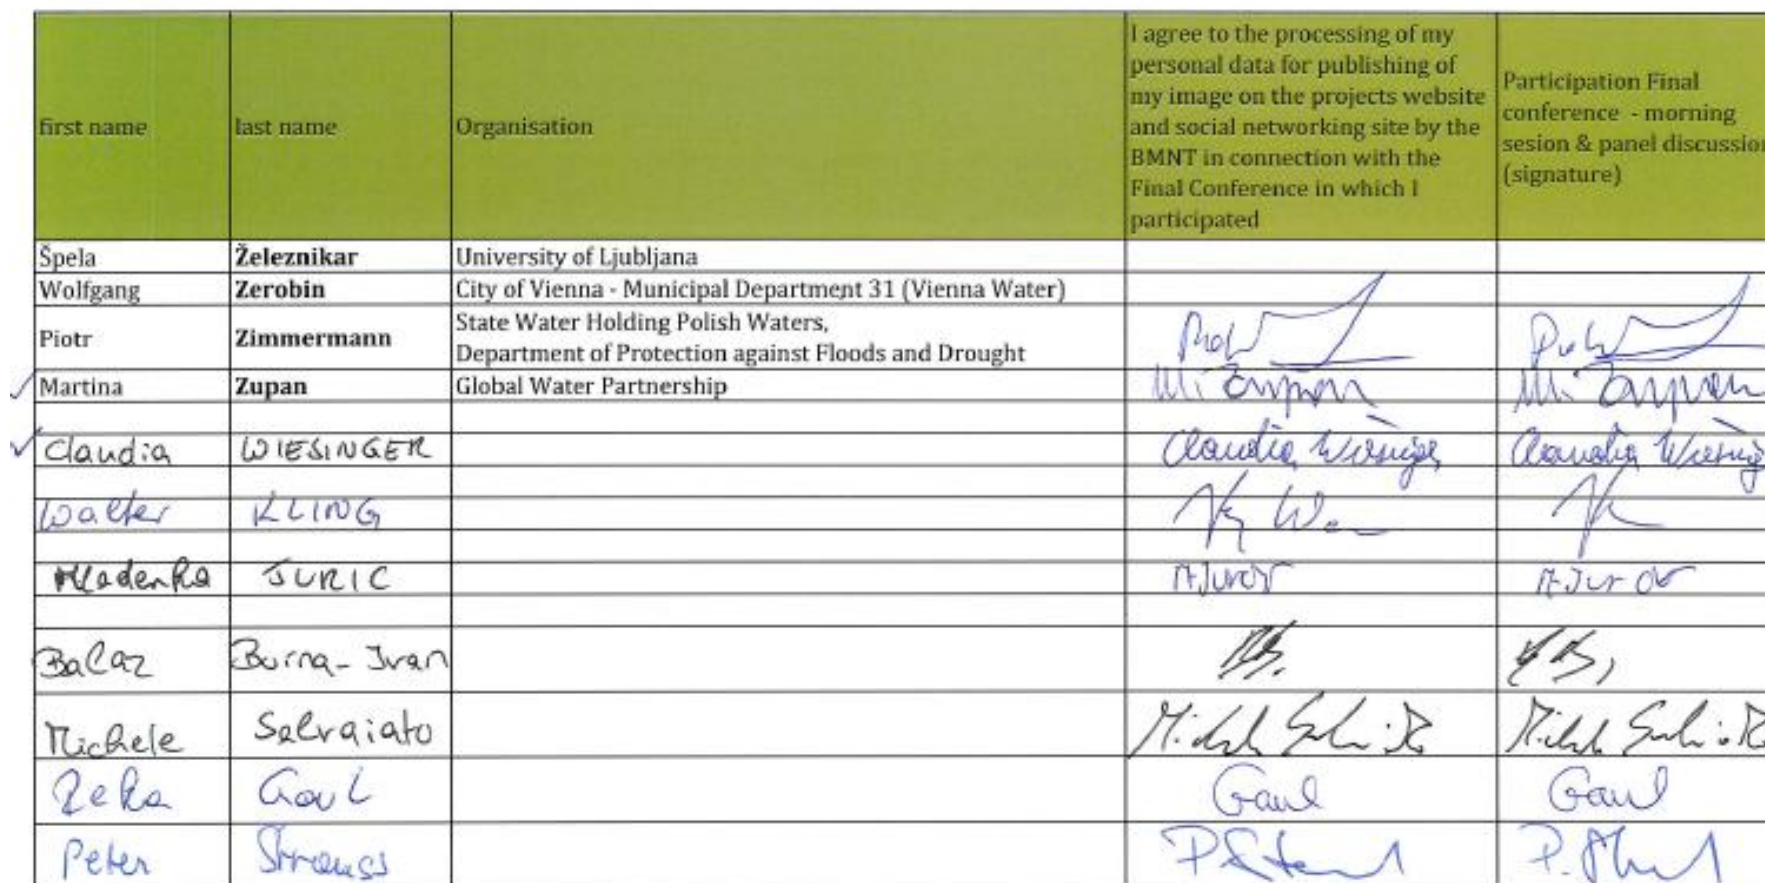 first name last name Organisation I agree to the processing of my
personal data for publishing of
my image on the projects website
and social networking site by the
BMNT in connection with the
Final Conference in which I
participated
Participation Final
conference - morning
sesion & panel discussion
(signature)
Špela Železnikar University of Ljubljana
Wolfgang Zerobin City of Vienna - Municipal Department 31 (Vienna Water)
Piotr Zimmermann State Water Holding Polish Waters,
Department of Protection against Floods and Drought
Martina Zupan Global Water Partnership M. Zupan M. Zupan
Claudia WIESINGER Claudia Wiesinger Claudia Wiesing
Walter KLING
Mladenka JURIC
Balaz Borna-Ivan
Michele Salvaiato
Reka Gaul Gaul Gaul
Peter Strauss